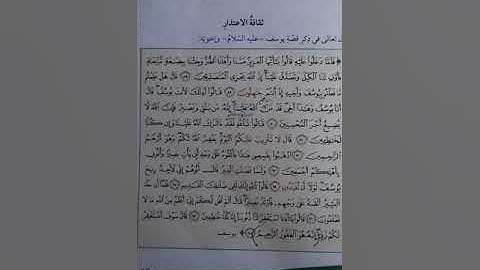 ثقافةُ الاعتذارِ
تعالى في ذكر قصّةِ يوسف - عليه السّلامُ - وإخوتِه:
﴿ فَلَمَّا دَخَلُوا۟ عَلَيْهِ قَالُوا۟ يَٰٓأَيُّهَا ٱلْعَزِيزُ مَسَّنَا وَأَهْلَنَا ٱلضُّرُّ وَجِئْنَا بِبِضَٰعَةٍ مُّزْجَىٰةٍ
فَأَوْفِ لَنَا ٱلْكَيْلَ وَتَصَدَّقْ عَلَيْنَآ إِنَّ ٱللَّهَ يَجْزِى ٱلْمُتَصَدِّقِينَ ٨٨ قَالَ هَلْ عَلِمْتُم
مَّا فَعَلْتُم بِيُوسُفَ وَأَخِيهِ إِذْ أَنتُمْ جَٰهِلُونَ ٨٩ قَالُوٓا۟ أَءِنَّكَ لَأَنتَ يُوسُفُ قَالَ
أَنَا۠ يُوسُفُ وَهَٰذَآ أَخِى قَدْ مَنَّ ٱللَّهُ عَلَيْنَآ إِنَّهُۥ مَن يَتَّقِ وَيَصْبِرْ فَإِنَّ ٱللَّهَ لَا
يُضِيعُ أَجْرَ ٱلْمُحْسِنِينَ ٩٠ قَالُوا۟ تَٱللَّهِ لَقَدْ ءَاثَرَكَ ٱللَّهُ عَلَيْنَا وَإِن كُنَّا
لَخَٰطِـِٔينَ ٩١ قَالَ لَا تَثْرِيبَ عَلَيْكُمُ ٱلْيَوْمَ يَغْفِرُ ٱللَّهُ لَكُمْ وَهُوَ أَرْحَمُ
ٱلرَّٰحِمِينَ ٩٢ ٱذْهَبُوا۟ بِقَمِيصِى هَٰذَا فَأَلْقُوهُ عَلَىٰ وَجْهِ أَبِى يَأْتِ بَصِيرًا وَأْتُونِى
بِأَهْلِكُمْ أَجْمَعِينَ ٩٣ وَلَمَّا فَصَلَتِ ٱلْعِيرُ قَالَ أَبُوهُمْ إِنِّى لَأَجِدُ رِيحَ
يُوسُفَ لَوْلَآ أَن تُفَنِّدُونِ ٩٤ قَالُوا۟ تَٱللَّهِ إِنَّكَ لَفِى ضَلَٰلِكَ ٱلْقَدِيمِ ٩٥ فَلَمَّآ أَن جَآءَ
ٱلْبَشِيرُ أَلْقَىٰهُ عَلَىٰ وَجْهِهِۦ فَٱرْتَدَّ بَصِيرًا قَالَ أَلَمْ أَقُل لَّكُمْ إِنِّىٓ أَعْلَمُ مِنَ ٱللَّهِ مَا لَا
تَعْلَمُونَ ٩٦ قَالُوا۟ يَٰٓأَبَانَا ٱسْتَغْفِرْ لَنَا ذُنُوبَنَآ إِنَّا كُنَّا خَٰطِـِٔينَ ٩٧ قَالَ سَوْفَ أَسْتَغْفِرُ
لَكُمْ رَبِّىٓ إِنَّهُۥ هُوَ ٱلْغَفُورُ ٱلرَّحِيمُ ٩٨ ﴾ يوسف